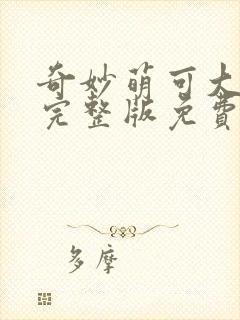 奇妙萌可大
完整版免費
多摩